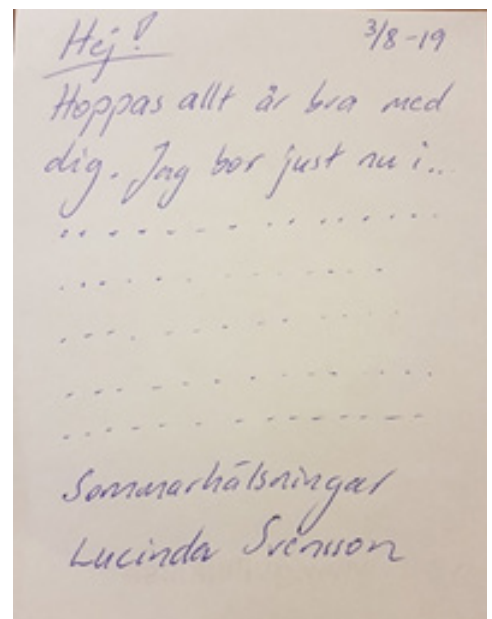 Hej! 3/8-19
Hoppas allt är bra med
dig. Jag bor just nu i...
. . . . . . . . . . . . . .
. . . . . . . . . . .
. . . . . . . . . . .
. . . . . . . . . . . .
. . . . . . . . . . . . . .
Sommarhälsningar
Lucinda Svensson